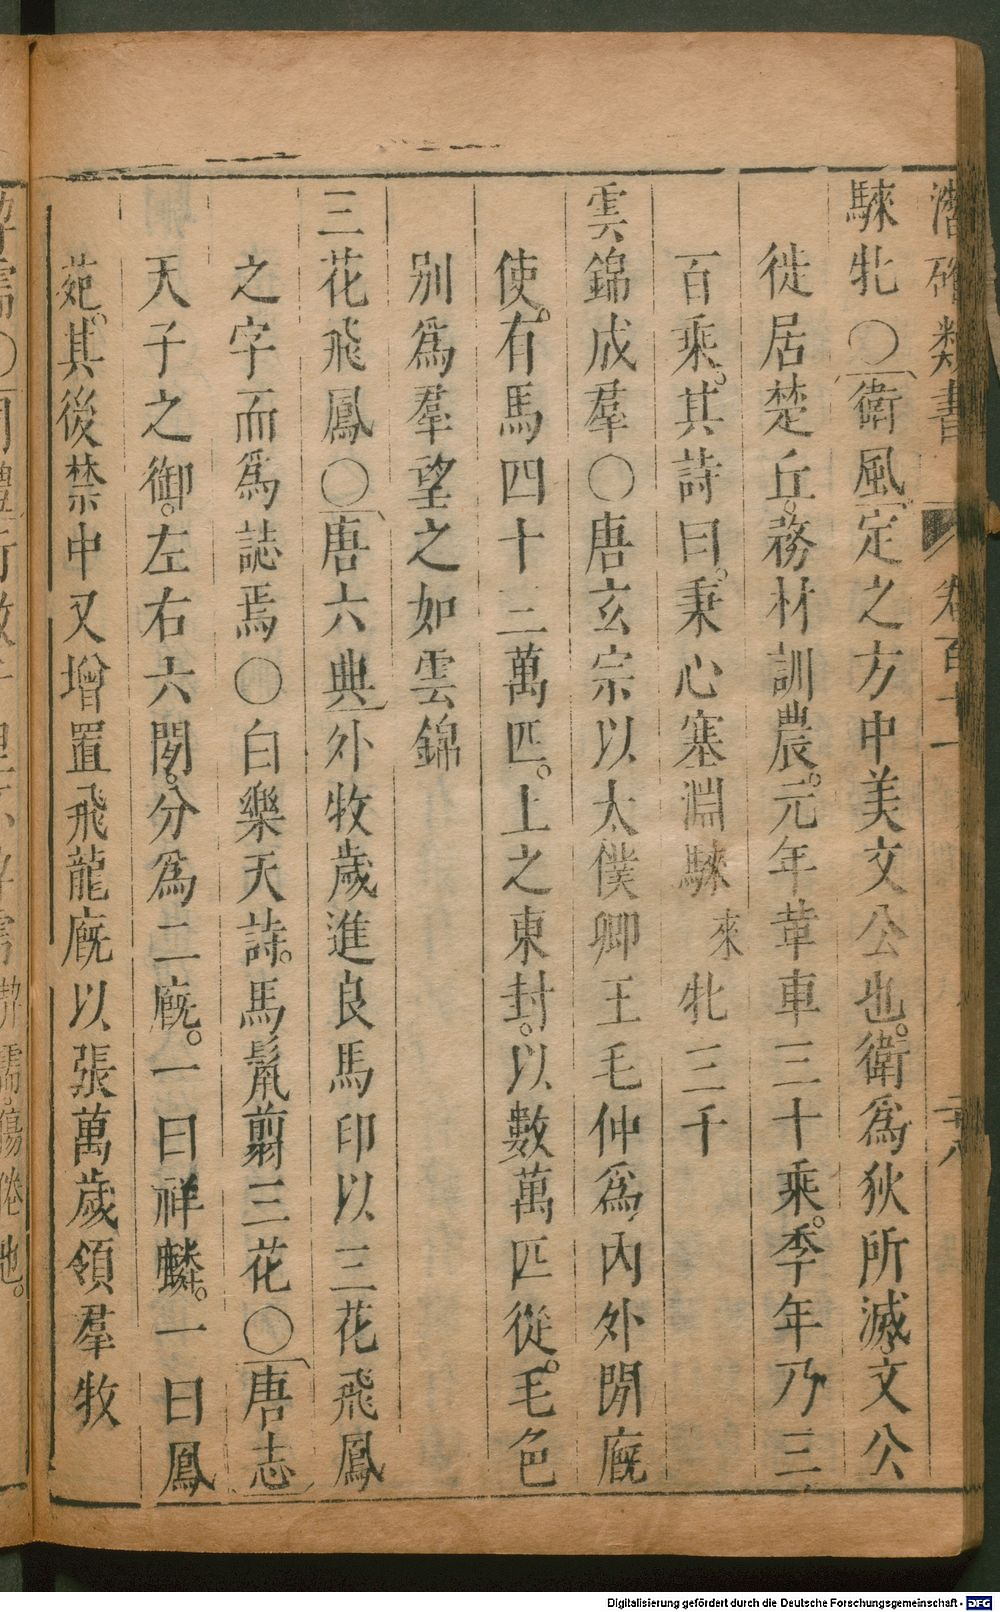 潛確類書 卷百十一 二十八
騋牝○衛風定之方中美文公也。衛爲狄所滅。文公
徙居楚丘。務材訓農。元年革車三十乘。季年乃三
百乘。其詩曰。秉心塞淵騋來牝三千
雲錦成羣○唐玄宗以太僕卿王毛仲爲內外閑廄
使。有馬四十三萬匹。上之東封。以數萬匹從。毛色
別爲羣望之如雲錦
三花飛鳳○唐六典外牧歲進良馬印以三花飛鳳
之字而爲誌焉○白樂天詩。馬鬛翦三花○唐志
天子之御。左右六閑。分爲二廄。一曰祥麟。一曰鳳
苑。其後禁中又增置飛龍廄以張萬歲領羣牧
Digitalisierung gefördert durch die Deutsche Forschungsgemeinschaft - DFG